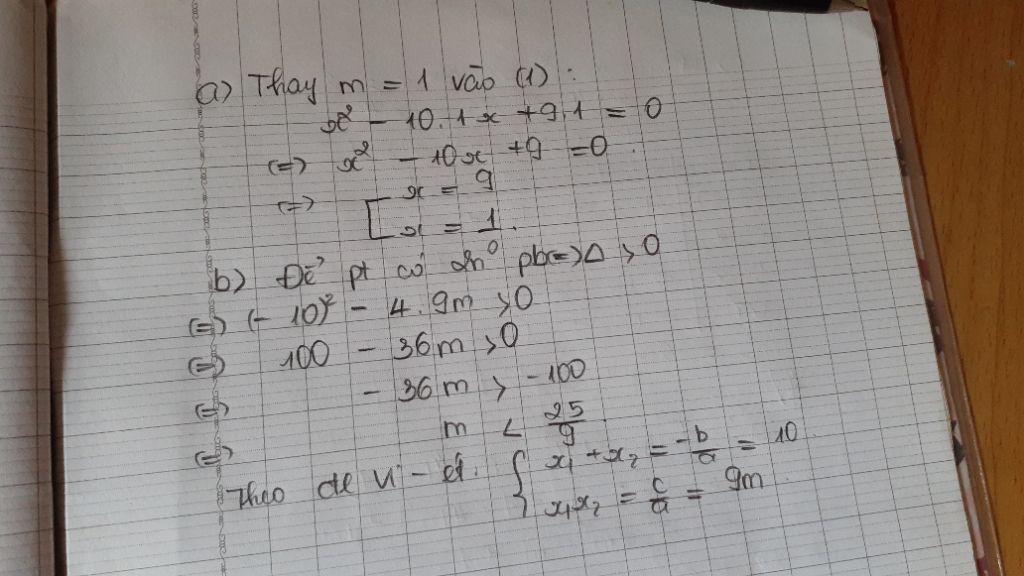 a) Thay m = 1 vào (1) :
x² - 10.1x + 9.1 = 0
(=) x² - 10x + 9 = 0.
(=) [ x = 9
x = 1.
b) Để pt có 2n⁰ pb(=) Δ > 0
(=) (-10)² - 4.9m > 0
(=) 100 - 36m > 0
(=) - 36m > -100
(=) m < 25/9
Theo đl Vi-ét. { x₁ + x₂ = -b/a = 10
x₁x₂ = c/a = 9m